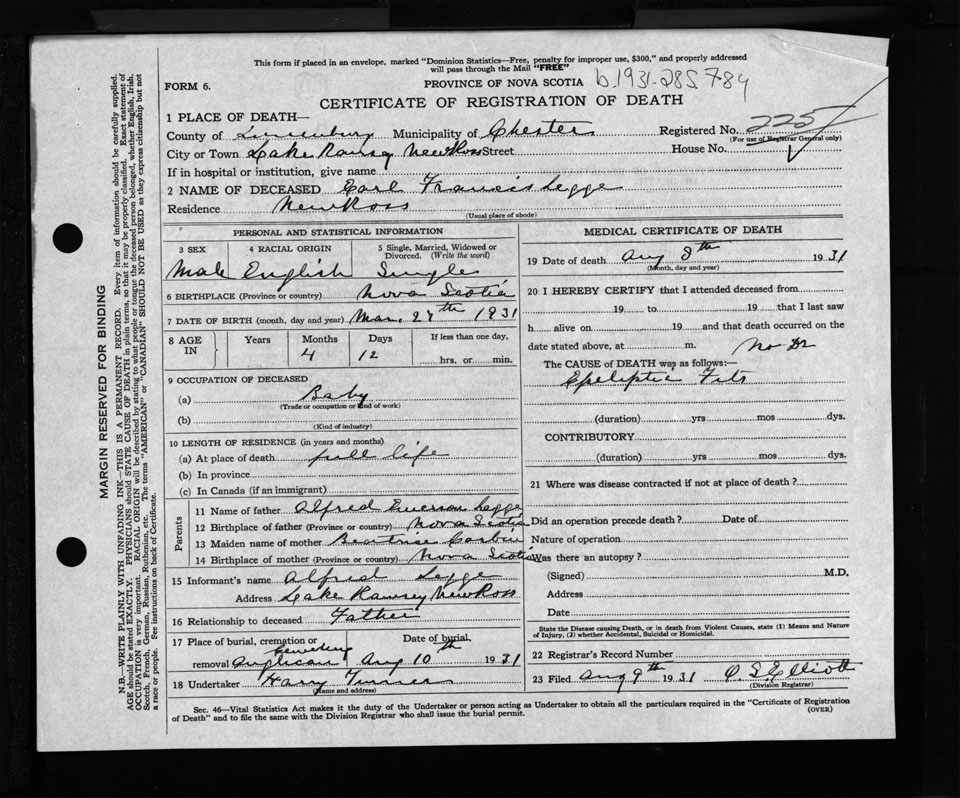 This form if placed in an envelope, marked "Dominion Statistics—Free, penalty for improper use, $300," and properly addressed
will pass through the Mail "FREE"
FORM 6.
PROVINCE OF NOVA SCOTIA b.1931-285784
CERTIFICATE OF REGISTRATION OF DEATH
1 PLACE OF DEATH—
County of Lunenburg Municipality of Chester Registered No. 225
(For use of Registrar General only)
City or Town Lake Ramsay New Ross Street House No.
If in hospital or institution, give name
2 NAME OF DECEASED Earl Francis Legge
Residence New Ross
(Usual place of abode)
PERSONAL AND STATISTICAL INFORMATION
3 SEX 4 RACIAL ORIGIN 5 Single, Married, Widowed or Divorced. (Write the word)
Male English Single
6 BIRTHPLACE (Province or country) Nova Scotia
7 DATE OF BIRTH (month, day and year) Mar. 27th 1931
8 AGE IN Years Months Days If less than one day,
4 12 hrs. or min.
9 OCCUPATION OF DECEASED
(a) Baby
(Trade or occupation or kind of work)
(b)
(Kind of industry)
10 LENGTH OF RESIDENCE (in years and months)
(a) At place of death full life
(b) In province
(c) In Canada (if an immigrant)
Parents
11 Name of father Alfred Emerson Legge
12 Birthplace of father (Province or country) Nova Scotia
13 Maiden name of mother Beatrice Corbin
14 Birthplace of mother (Province or country) Nova Scotia
15 Informant's name Alfred Legge
Address Lake Ramsey New Ross
16 Relationship to deceased Father
17 Place of burial, cremation or Date of burial,
removal Anglican Cemetery Aug 10th 1931
18 Undertaker Harry Turner
(Name and address)
MEDICAL CERTIFICATE OF DEATH
19 Date of death Aug 8th 1931
(Month, day and year)
20 I HEREBY CERTIFY that I attended deceased from
19 to 19 that I last saw
h alive on 19 and that death occurred on
date stated above, at m. No Dr
The CAUSE of DEATH was as follows:
Epeleptic Fits
(duration) yrs mos dys.
CONTRIBUTORY
(duration) yrs mos dys.
21 Where was disease contracted if not at place of death?
Did an operation precede death? Date of
Nature of operation
Was there an autopsy?
(Signed) M.D.
Address
Date
State the Disease causing Death, or in death from Violent Causes, state (1) Means and Nature
of Injury, (2) whether Accidental, Suicidal or Homicidal.
22 Registrar's Record Number
23 Filed Aug 9th 1931 O S Elliott
(Division Registrar)
Sec. 46—Vital Statistics Act makes it the duty of the Undertaker or person acting as Undertaker to obtain all the particulars required in the "Certificate of Registration
of Death" and to file the same with the Division Registrar who shall issue the burial permit. (OVER)
MARGIN RESERVED FOR BINDING
N.B.—WRITE PLAINLY WITH UNFADING INK—THIS IS A PERMANENT RECORD. Every item of information should be carefully supplied.
AGE should be stated EXACTLY. PHYSICIANS should STATE CAUSE OF DEATH in plain terms, so that it may be properly classified. Exact statement of
OCCUPATION is very important. RACIAL ORIGIN will be described by stating to what people or tongue the deceased person belonged, whether English, Irish,
Scotch, French, German, Russian, Ruthenian, etc. The terms "AMERICAN" or "CANADIAN" SHOULD NOT BE USED as they express citizenship but not
a race or people. See instructions on back of Certificate.